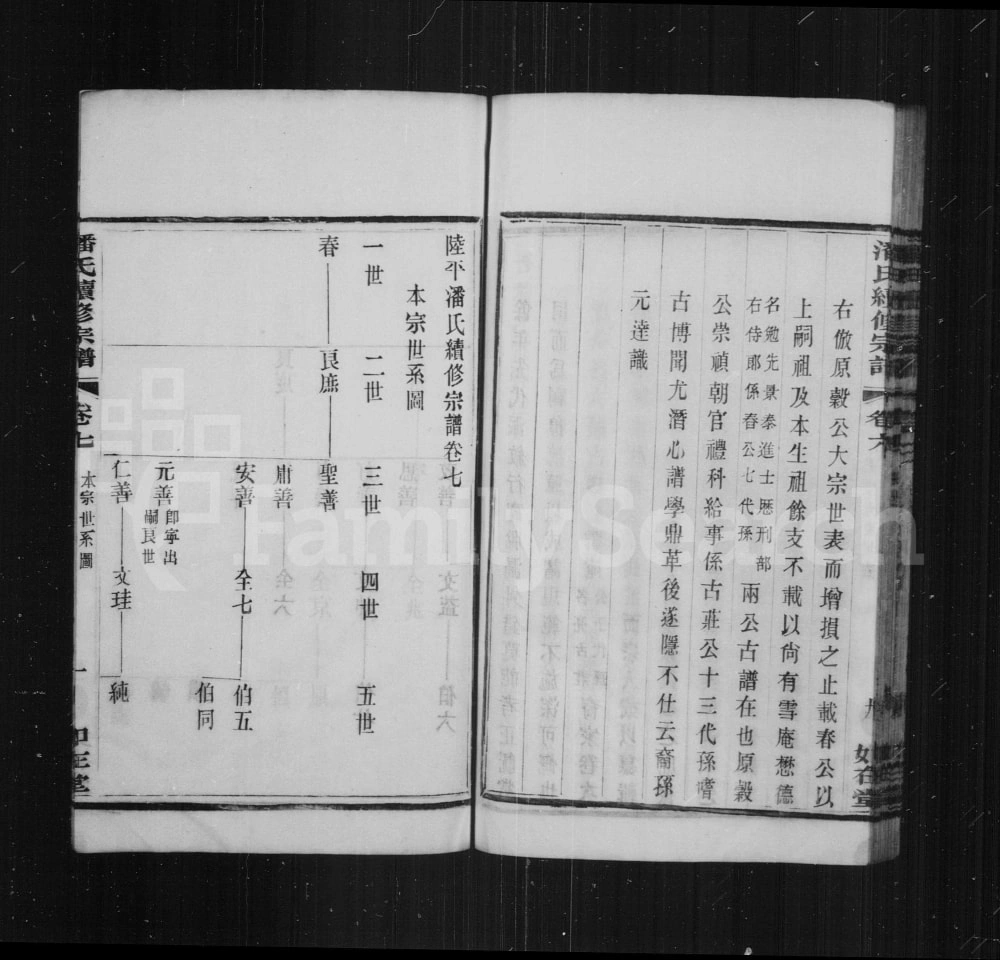 潘氏續修宗譜
卷六
如在堂
右倣原穀公大宗世表而增損之止載春公以
上嗣祖及本生祖餘支不載以尙有雪庵懋德
名勉先景泰進士歷刑部
右侍郎係春公七代孫
兩公古譜在也原穀
公崇禎朝官禮科給事係古莊公十三代孫嗜
古博聞尤潛心譜學鼎革後遂隱不仕云裔孫
元達識
陸平潘氏續修宗譜卷七
本宗世系圖
一世 二世 三世 四世 五世
春 艮庶 聖善
肅善
安善 全七 伯五
伯同
元善 卽寧出
嗣艮世
仁善 文珪 純
潘氏續修宗譜
卷七
本宗世系圖
一
如在堂
FamilySearch